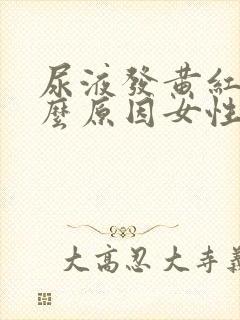 尿液發黃紅
麼原因女性
大高忍大寺